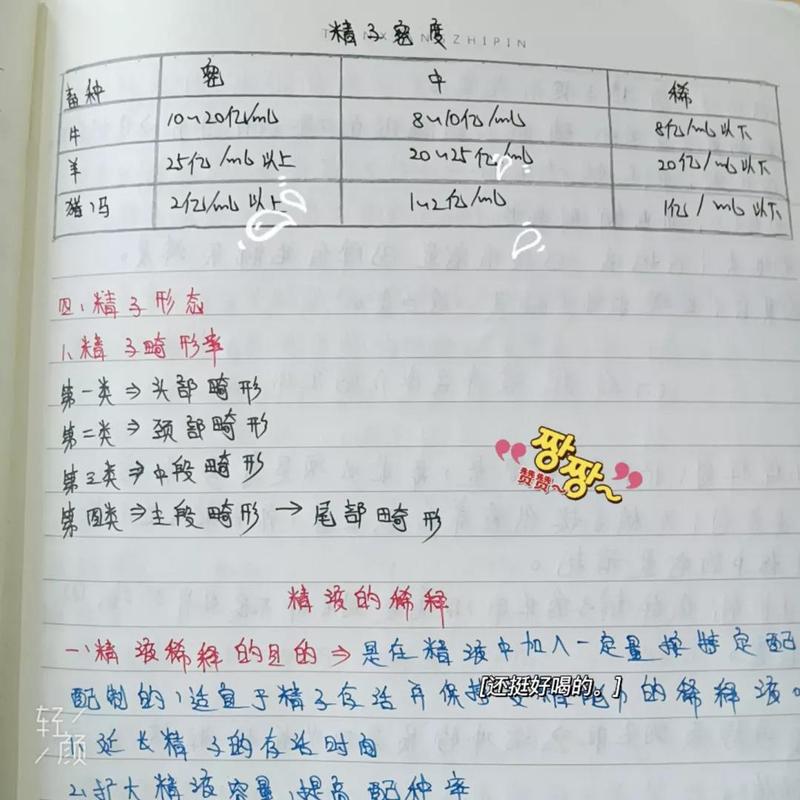 精子密度
畜种 密 中 稀
牛 10~20亿/ml 8~10亿/ml 8亿/ml以下
羊 25亿/ml以上 20~25亿/ml 20亿/ml以下
猪、马 2亿/ml以上 1~2亿/ml 1亿/ml以下
四、精子形态
1、精子畸形率
第一类⇒头部畸形
第二类⇒颈部畸形
第三类⇒中段畸形
第四类⇒主段畸形→尾部畸形
짱짱~
赞赞~
精液的稀释
一、精液稀释的目的⇒是在精液中加入一定量按特定配
配制的、适宜于精子存活并保持受精能力的稀释液。
[还挺好喝的。]
延长精子的存活时间
2、扩大精液容量、提高配种率
轻/
/颜